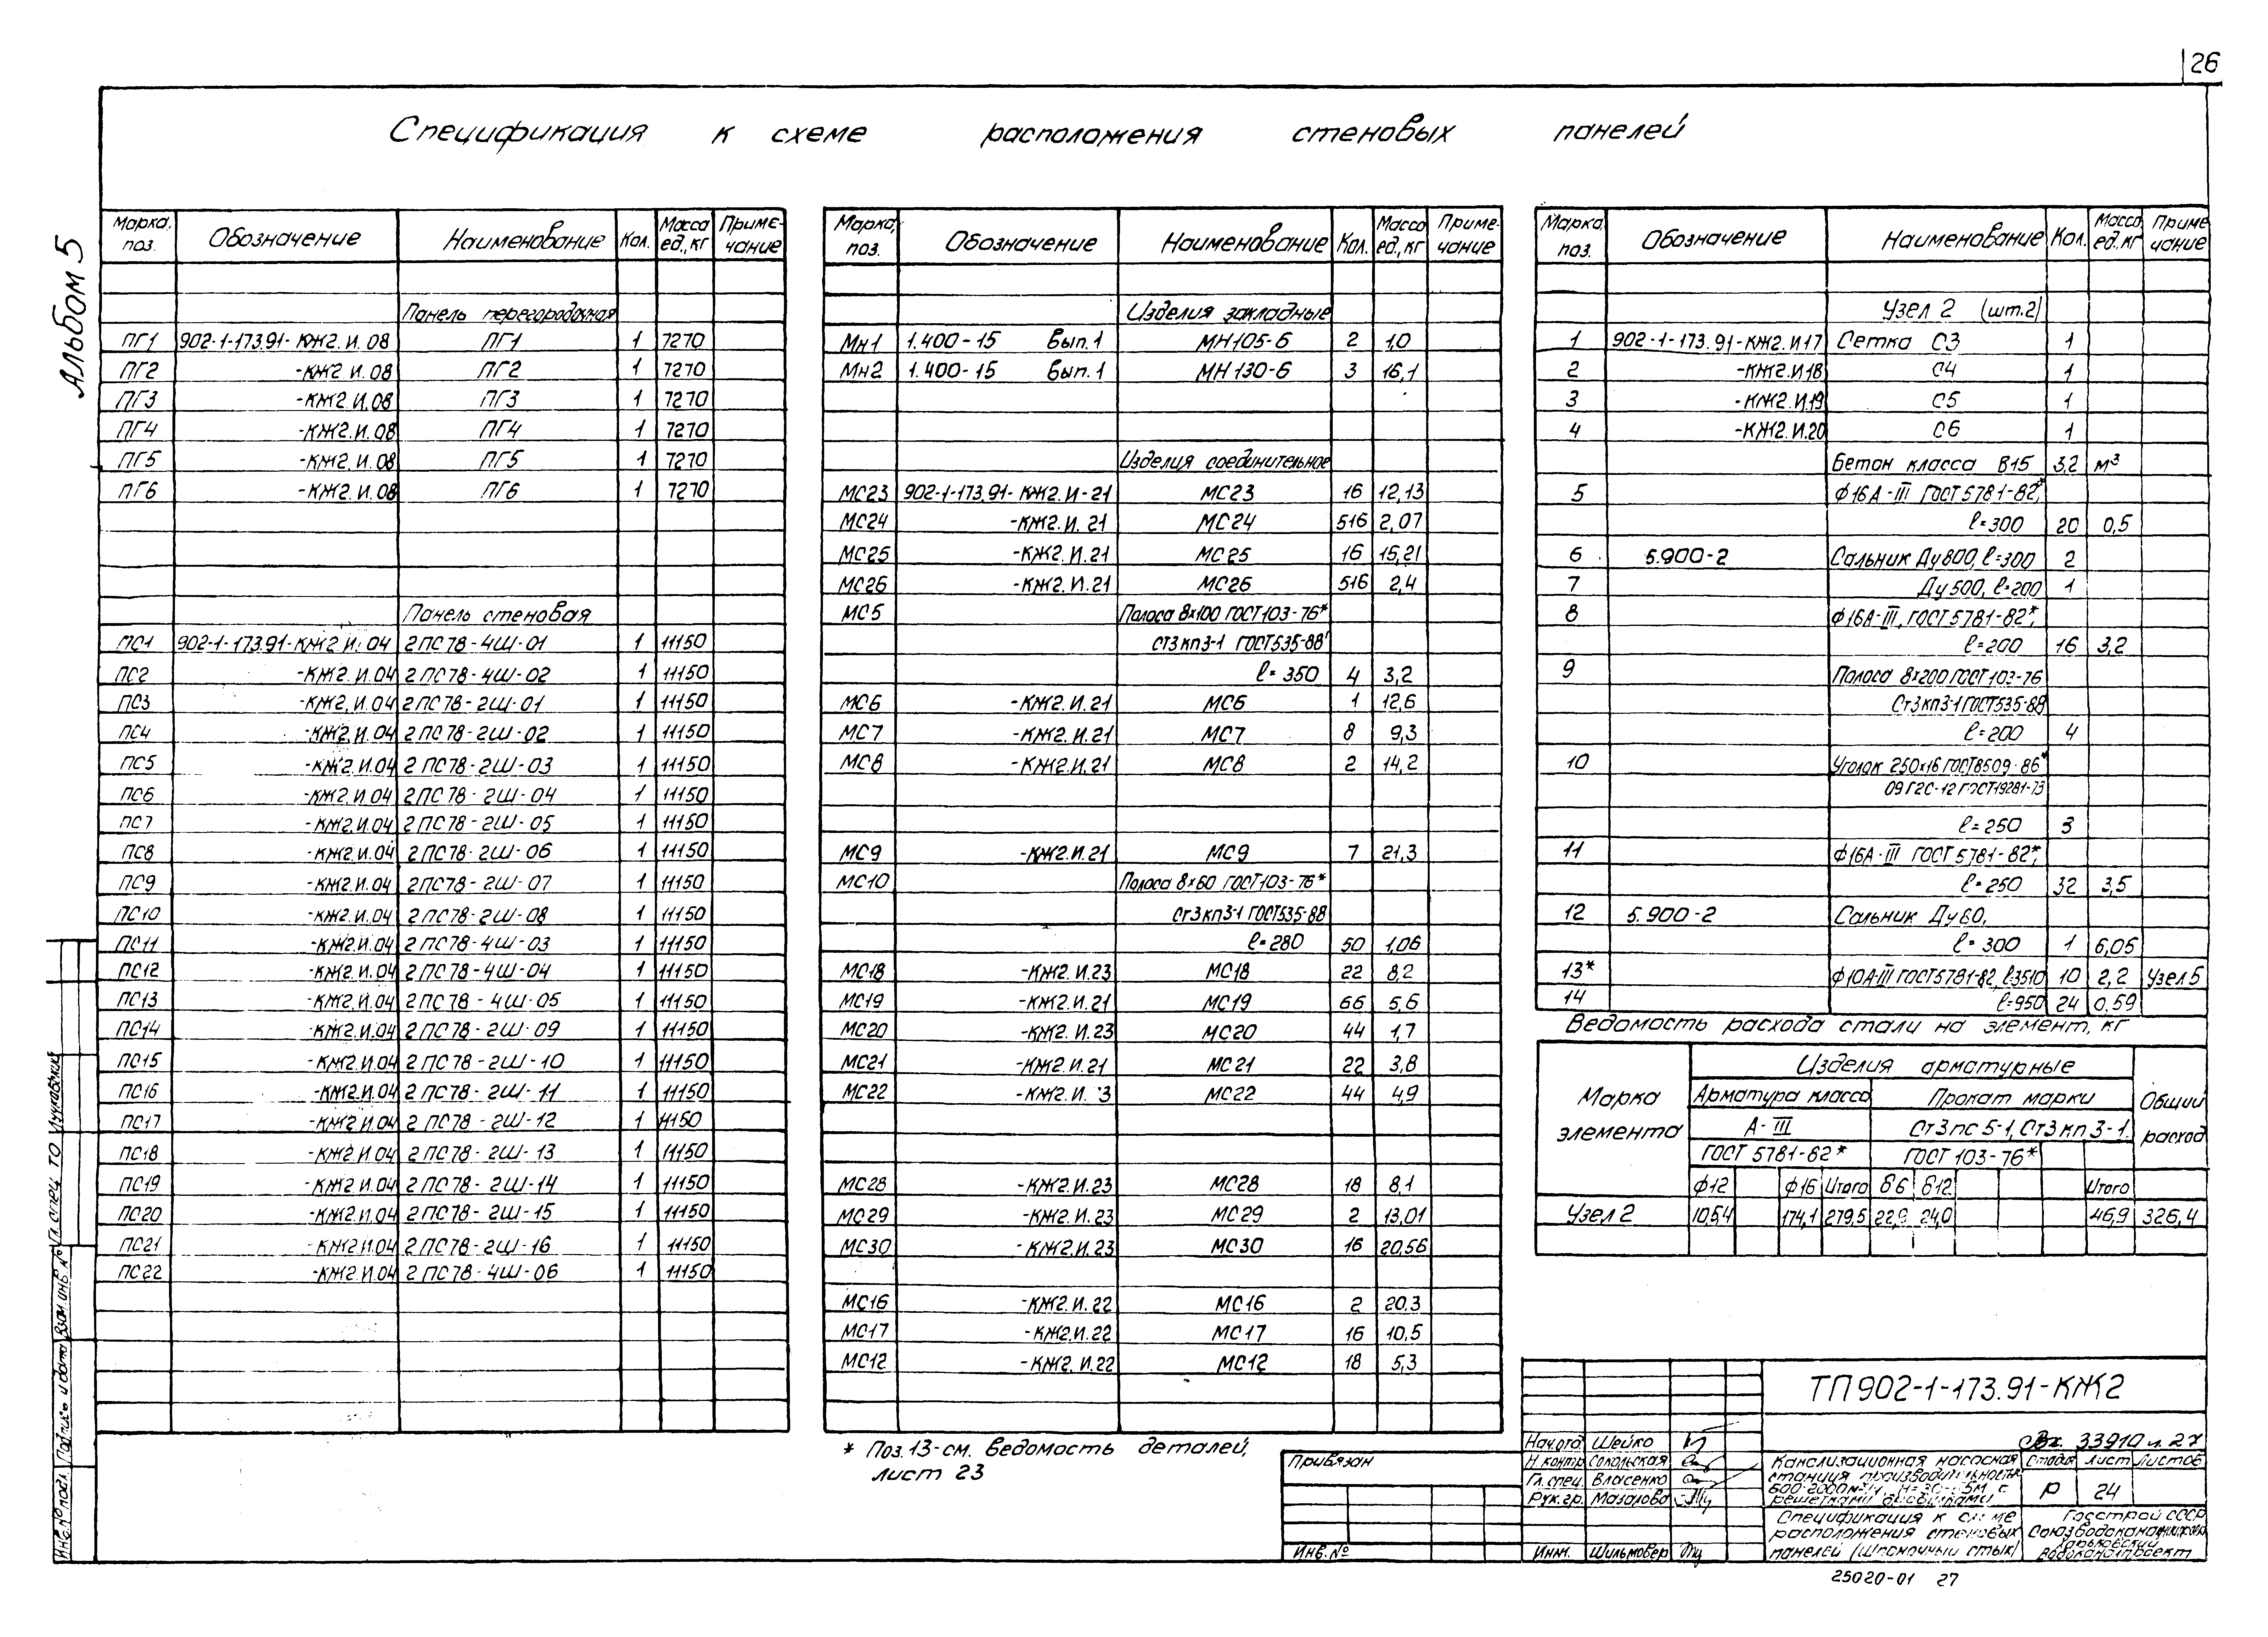 26
Спецификация к схеме расположения стеновых панелей
Альбом 5
Марка, поз. Обозначение Наименование Кол. Масса ед., кг Примечание
Панель перегородочная
ПГ1 902-1-173.91-КЖ2.И.08 ПГ1 1 7270
ПГ2 -КЖ2.И.08 ПГ2 1 7270
ПГ3 -КЖ2.И.08 ПГ3 1 7270
ПГ4 -КЖ2.И.08 ПГ4 1 7270
ПГ5 -КЖ2.И.08 ПГ5 1 7270
ПГ6 -КЖ2.И.08 ПГ6 1 7270
Панель стеновая
ПС1 902-1-173.91-КЖ2.И.04 2ПС78-4Ш-01 1 11150
ПС2 -КЖ2.И.04 2ПС78-4Ш-02 1 11150
ПС3 -КЖ2.И.04 2ПС78-2Ш-01 1 11150
ПС4 -КЖ2.И.04 2ПС78-2Ш-02 1 11150
ПС5 -КЖ2.И.04 2ПС78-2Ш-03 1 11150
ПС6 -КЖ2.И.04 2ПС78-2Ш-04 1 11150
ПС7 -КЖ2.И.04 2ПС78-2Ш-05 1 11150
ПС8 -КЖ2.И.04 2ПС78-2Ш-06 1 11150
ПС9 -КЖ2.И.04 2ПС78-2Ш-07 1 11150
ПС10 -КЖ2.И.04 2ПС78-2Ш-08 1 11150
ПС11 -КЖ2.И.04 2ПС78-4Ш-03 1 11150
ПС12 -КЖ2.И.04 2ПС78-4Ш-04 1 11150
ПС13 -КЖ2.И.04 2ПС78-4Ш-05 1 11150
ПС14 -КЖ2.И.04 2ПС78-2Ш-09 1 11150
ПС15 -КЖ2.И.04 2ПС78-2Ш-10 1 11150
ПС16 -КЖ2.И.04 2ПС78-2Ш-11 1 11150
ПС17 -КЖ2.И.04 2ПС78-2Ш-12 1 11150
ПС18 -КЖ2.И.04 2ПС78-2Ш-13 1 11150
ПС19 -КЖ2.И.04 2ПС78-2Ш-14 1 11150
ПС20 -КЖ2.И.04 2ПС78-2Ш-15 1 11150
ПС21 -КЖ2.И.04 2ПС78-2Ш-16 1 11150
ПС22 -КЖ2.И.04 2ПС78-4Ш-06 1 11150
Марка, поз. Обозначение Наименование Кол. Масса ед., кг Примечание
Изделия закладные
Мн1 1.400-15 Вып.1 МН105-6 2 1.0
Мн2 1.400-15 Вып.1 МН130-6 3 16,1
Изделия соединительное
МС23 902-1-173.91-КЖ2.И-21 МС23 16 12,13
МС24 -КЖ2.И.21 МС24 516 2,07
МС25 -КЖ2.И.21 МС25 16 15,21
МС26 -КЖ2.И.21 МС26 516 2,4
МС5 Полоса 8х100 ГОСТ103-76*
Ст3кп3-1 ГОСТ535-88
ℓ=350 4 3,2
МС6 -КЖ2.И.21 МС6 1 12,6
МС7 -КЖ2.И.21 МС7 8 9,3
МС8 -КЖ2.И.21 МС8 2 14,2
МС9 -КЖ2.И.21 МС9 7 21,3
МС10 Полоса 8х60 ГОСТ103-76*
Ст3кп3-1 ГОСТ535-88
ℓ=280 50 1,06
МС18 -КЖ2.И.23 МС18 22 8,2
МС19 -КЖ2.И.21 МС19 66 5,6
МС20 -КЖ2.И.23 МС20 44 1,7
МС21 -КЖ2.И.21 МС21 22 3,8
МС22 -КЖ2.И. 3 МС22 44 4,9
МС28 -КЖ2.И.23 МС28 18 8,1
МС29 -КЖ2.И.23 МС29 2 13,01
МС30 -КЖ2.И.23 МС30 16 20,56
МС16 -КЖ2.И.22 МС16 2 20,3
МС17 -КЖ2.И.22 МС17 16 10,5
МС12 -КЖ2.И.22 МС12 18 5,3
* Поз.13-см. ведомость деталей,
лист 23
Марка, поз. Обозначение Наименование Кол. Масса ед., кг Примечание
Узел 2 (шт.2)
1 902-1-173.91-КЖ2.И17 Сетка С3 1
2 -КЖ2.И.18 С4 1
3 -КЖ2.И.19 С5 1
4 -КЖ2.И.20 С6 1
Бетон класса В15 3,2 м³
5 ф16А-III ГОСТ5781-82*,
ℓ=300 20 0,5
6 5.900-2 Сальник Ду800, ℓ=300 2
7 Ду500, ℓ=200 1
8 ф16А-III, ГОСТ5781-82*,
ℓ=200 16 3,2
9 Полоса 8х200 ГОСТ103-76
Ст3кп3-1 ГОСТ535-88
ℓ=200 4
10 Уголок 250х16 ГОСТ8509-86*
09Г2С-12 ГОСТ19281-73
ℓ=250 3
11 ф16А-III ГОСТ5781-82*,
ℓ=250 32 3,5
12 5.900-2 Сальник Ду80,
ℓ=300 1 6,05
13* ф10А-III ГОСТ5781-82, ℓ3510 10 2,2 Узел 5
14 ℓ=950 24 0,59
Ведомость расхода стали на элемент, кг
Марка элемента Изделия арматурные Общий расход
Арматура класса Прокат марки
А-III Ст3пс5-1, Ст3кп3-1.
ГОСТ 5781-82* ГОСТ 103-76*
ф12 ф16 Итого δ6 δ12 Итого
Узел 2 105,4 174,1 279,5 22,9 24,0 46,9 326,4
ТП902-1-173.91-КЖ2
33910 л.27
Нач.отд. Шейко
Н.контр Сокольская
Гл.спец. Власенко
Рук.гр. Мазалова
Инж. Шильмовер
Привязан
Инв.№
Канализационная насосная
станция производительностью
решетками дробилками
Стадия Лист Листов
Р 24
Спецификация к схеме
расположения стеновых
панелей (Шпоночный стык)
Госстрой СССР
Союзводоканалпроект
Харьковский
Водоканалпроект
25020-01 27
Гл. спец. ТО
Взам.инв.№
Подпись и дата
Инв.№ подл.